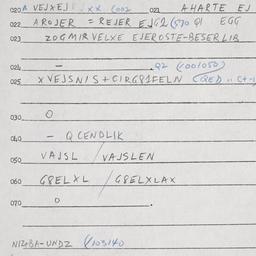 020 A VEJXEJ XX (002 021 AHARTE EJ
022 AROJER = REJER EJG2 (570 QI EGG
023 ZOGMIR VELXE EJEROSTE-BESERLIB
024 — Q2 (001050)
025 XVEJSNIS + CIRG81FELN
030 O
040 — QCENDLIK
050 VAJSL / VAJSLEN
060 G8ELXL / G8ELXLAX
070 O
NIZOBA-UNDZ (103140